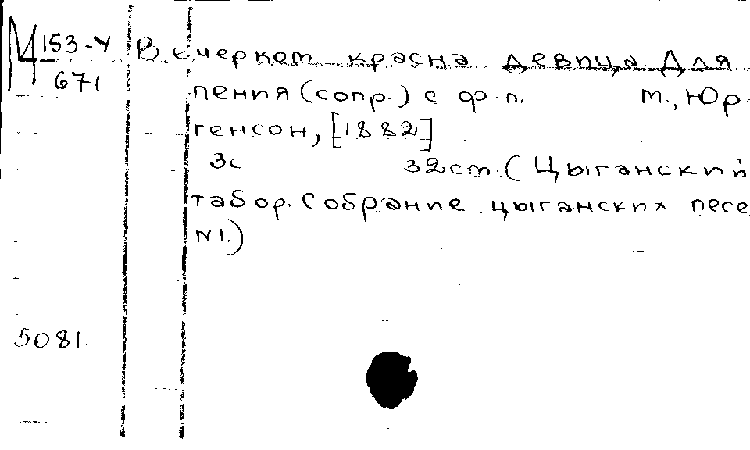 М 153-4 Вечерком красна девица Для
671 пения (сопр.) с ф.п. М., Юр-
генсон, [1882]
3с 32 см. (Цыганский
табор. Собрание цыганских песе
N1.)
5081.